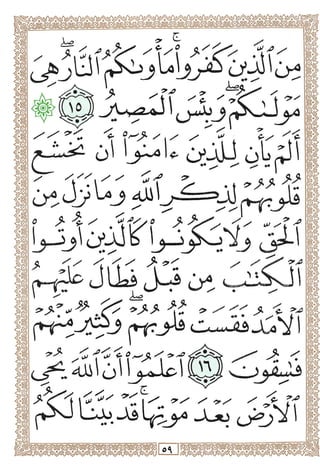 مِنَ ٱلَّذِينَ كَفَرُوا۟ ۚ مَأْوَىٰكُمُ ٱلنَّارُ ۖ هِىَ
مَوْلَىٰكُمْ ۖ وَبِئْسَ ٱلْمَصِيرُ ١٥
أَلَمْ يَأْنِ لِلَّذِينَ ءَامَنُوٓا۟ أَن تَخْشَعَ
قُلُوبُهُمْ لِذِكْرِ ٱللَّهِ وَمَا نَزَلَ مِنَ
ٱلْحَقِّ وَلَا يَكُونُوا۟ كَٱلَّذِينَ أُوتُوا۟
ٱلْكِتَـٰبَ مِن قَبْلُ فَطَالَ عَلَيْهِمُ
ٱلْأَمَدُ فَقَسَتْ قُلُوبُهُمْ ۖ وَكَثِيرٌ مِّنْهُمْ
فَـٰسِقُونَ ١٦ ٱعْلَمُوٓا۟ أَنَّ ٱللَّهَ يُحْىِ
ٱلْأَرْضَ بَعْدَ مَوْتِهَا ۚ قَدْ بَيَّنَّا لَكُمُ
٥٩